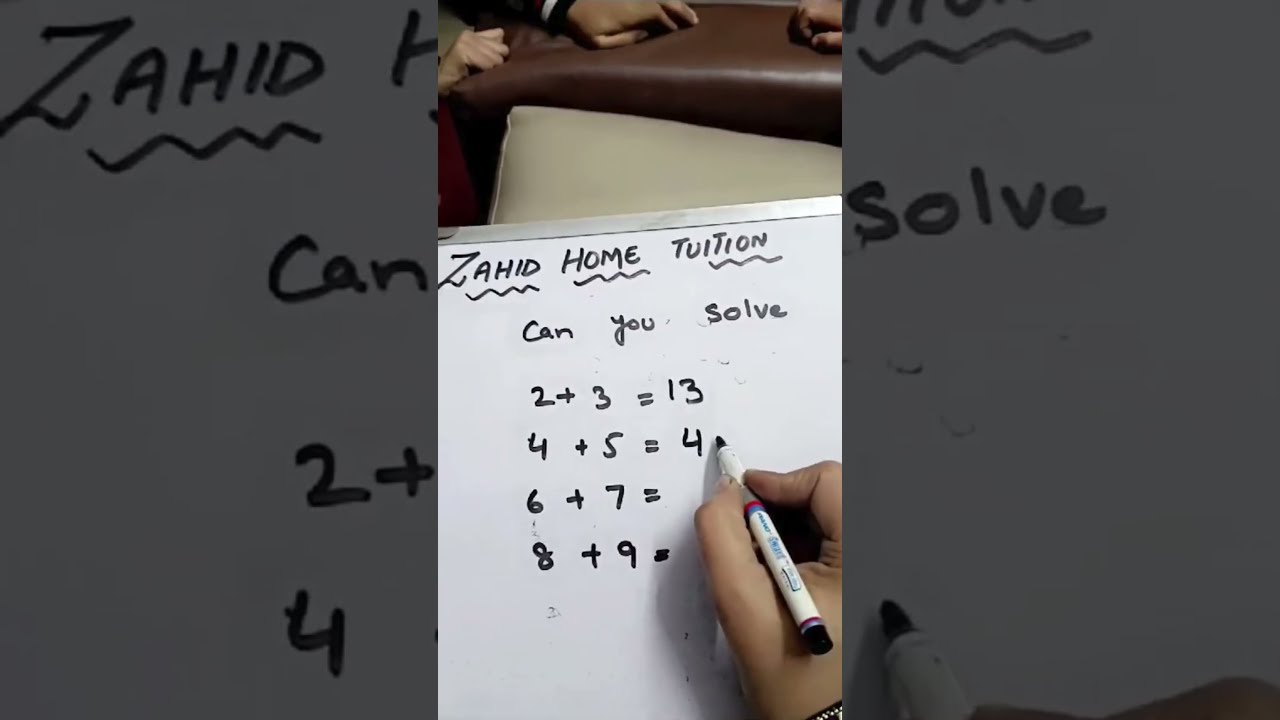 ZAHID HOME TUITION
Can you solve
2 + 3 = 13
4 + 5 = 4
6 + 7 =
8 + 9 =